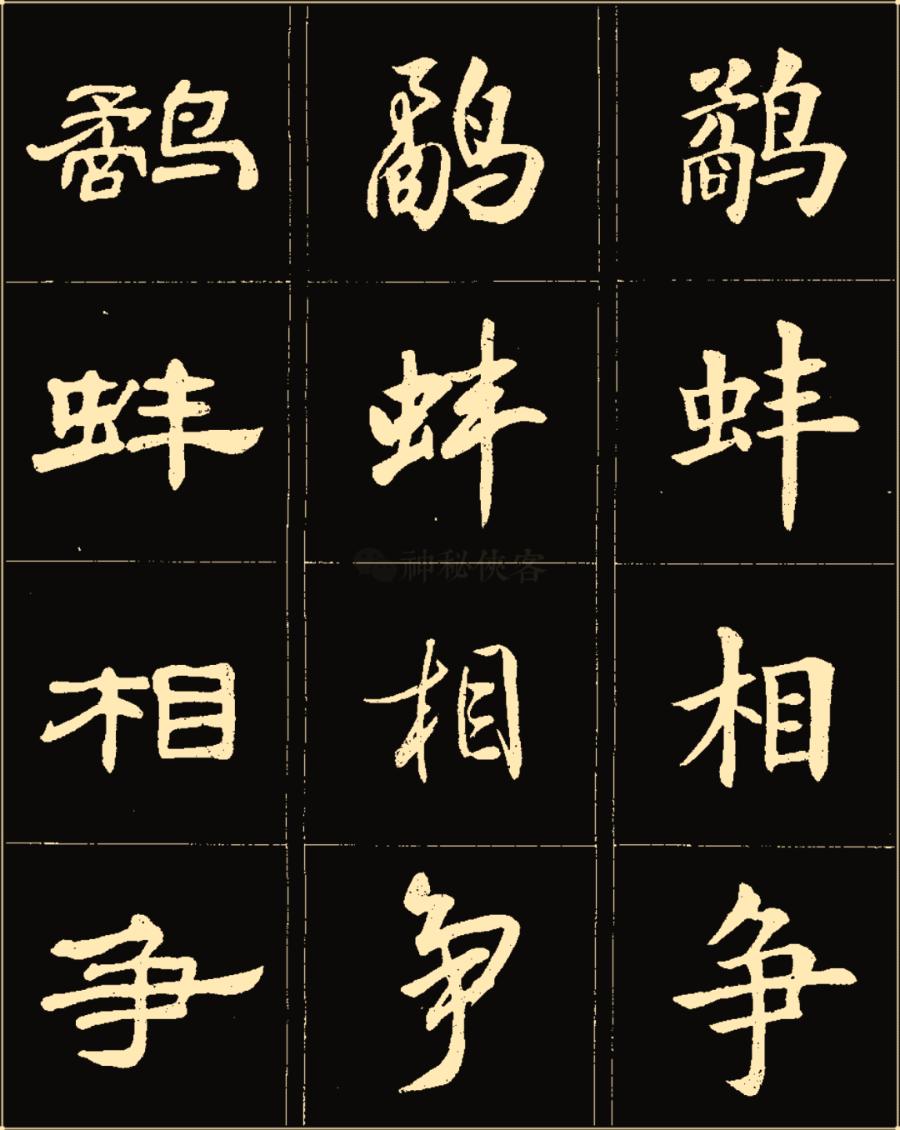 鹬 鹬 鹬
蚌 蚌 蚌
神秘侠客
相 相 相
争 争 争